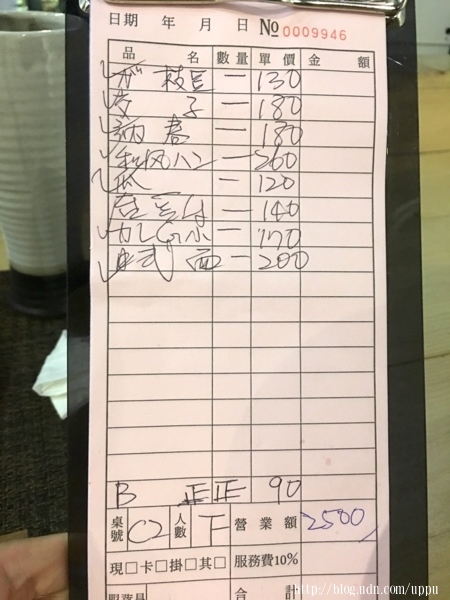 日期 年 月 日 № 0009946
品 名 數量 單價 金 額
ガ 枝豆 一 130
子 一 180
一 180
和风ハン 一 260
瓜 一 120
一 140
一 170
日式 面 一 200
B 正正 90
桌號 C2 人數 下 營業額 2500
現□卡□掛□其□ 服務費10%
合 計
http://blog.udn.com/uppu